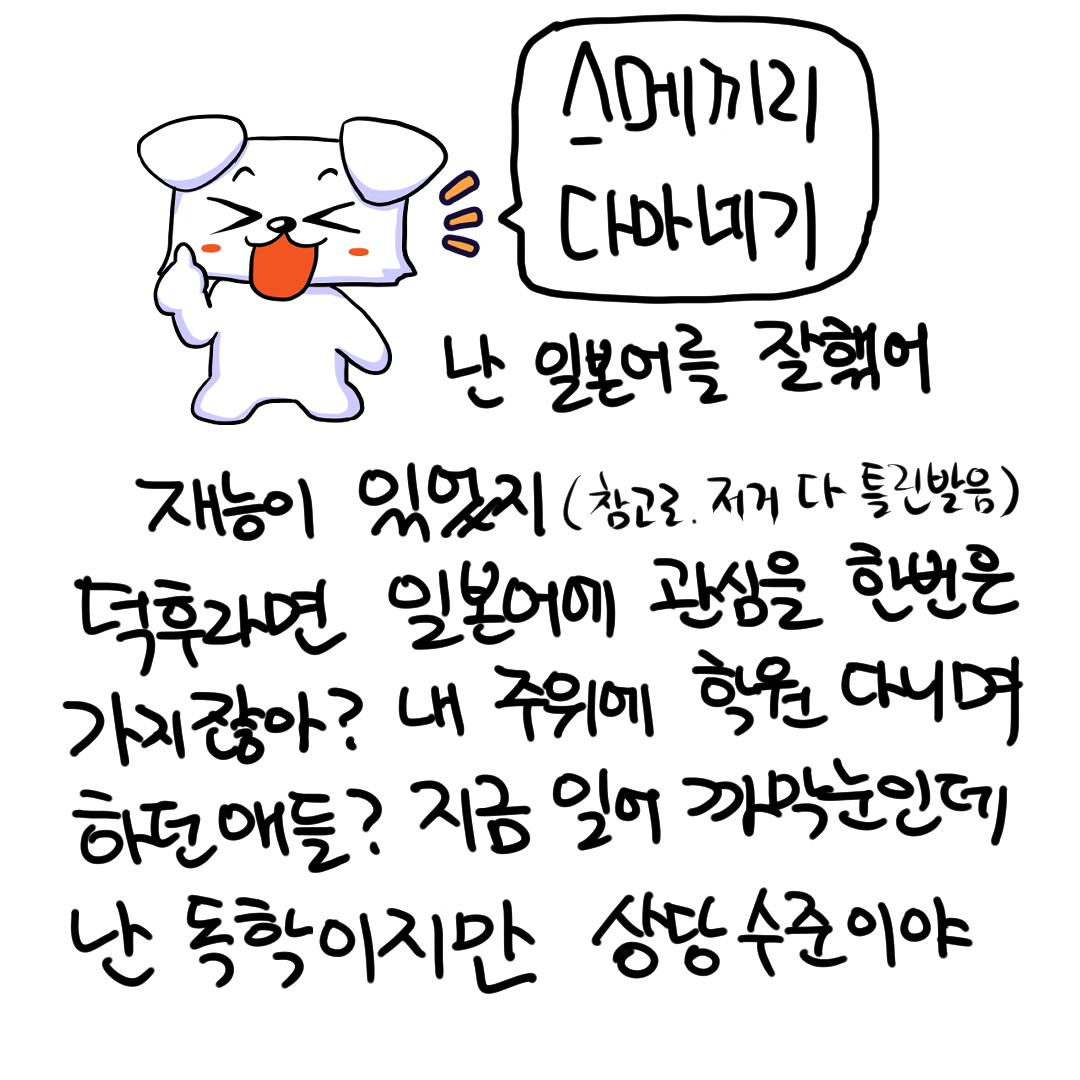 스메끼리
다마네기
난 일본어를 잘했어
재능이 있었지 (참고로. 저거 다 틀린발음)
덕후라면 일본어에 관심을 한번은
가지잖아? 내 주위에 학원 다니며
하던애들? 지금 일어 까막눈인데
난 독학이지만 상당수준이야